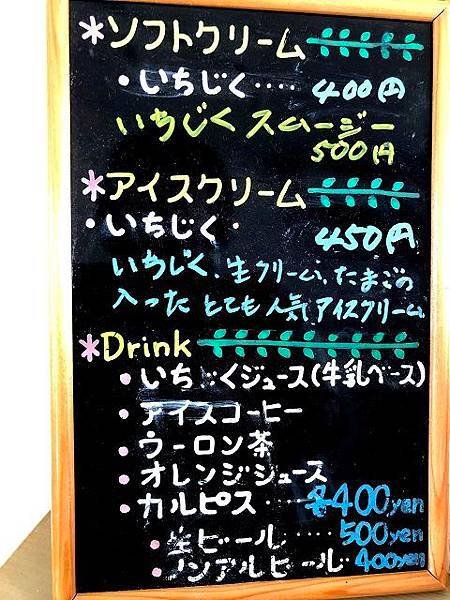 *ソフトクリーム
・いちじく‥‥ 400円
いちじくスムージー
500円
*アイスクリーム
・いちじく・ 450円
いちじく、生クリーム、たまごの
入った とても人気アイスクリーム
*Drink
・いちじくジュース(牛乳ベース)
・アイスコーヒー
・ウーロン茶
・オレンジジュース
・カルピス‥‥各400yen
・生ビール‥‥500yen
・ノンアルビール‥400yen